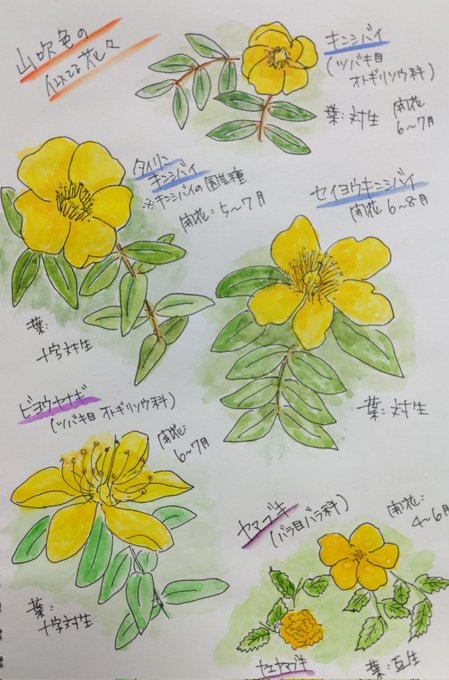 山吹色の
似てる花々
キンシバイ
(ツバキ目
オトギリソウ科)
葉:対生
開花
6〜7月
タイリン
キンシバイ
※キンシバイの園芸種
開花:5〜7月
葉:
十字対生
セイヨウキンシバイ
開花6〜8月
葉:対生
ビヨウヤナギ
(ツバキ目オトギリソウ科)
開花:
6〜7月
葉:
十字対生
ヤマブキ
(バラ目バラ科)
開花:
4〜6月
ヤエヤマブキ
葉:互生